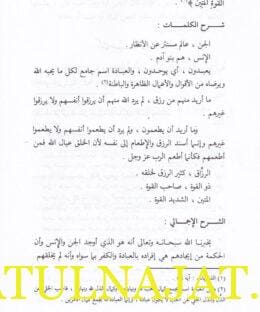 القوة المتين ﴾(١) .
شرح الكلمات :
الجن ، عالم مستتر عن الأنظار .
الإنس ، هم بنو آدم .
يعبدون ، أي يوحدون ، والعبادة اسم جامع لكل ما يحبه الله
ويرضاه من الأقوال والأعمال الظاهرة والباطنة(٢) .
ما أريد منهم من رزق ، لم يرد الله منهم أن يرزقوا أنفسهم ولا يرزقوا
غيرهم .
وما أريد أن يطعمون ، ولم يرد أن يطعموا أنفسهم ولا يطعموا
غيرهم وإنما أسند الرزق والإطعام إلى نفسه لأن الخلق عيال الله فمن
أطعمهم فكأنما أطعم الرب عز وجل .
الرزاق ، كثير الرزق لخلقه .
ذو القوة ، صاحب القوة .
المتين ، الشديد القوة .
الشرح الإجمالي :
يخبرنا الله سبحانه وتعالى أنه هو الذي أوجد الجن والإنس وأن
الحكمة من إيجادهم هي إفراده بالعبادة والكفر بما سواه وأنه لم يخلقهم
ATULNAJAT.